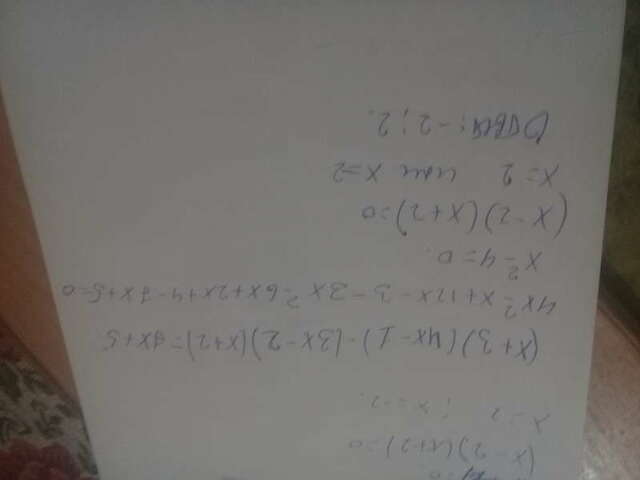 (x-2)(x+2)=0
x=2 ; x=-2.
(x+3)(4x-1)-(3x-2)(x+2)=7x+5
4x²-x+12x-3-3x²-6x+2x+4-7x+5=0
x²-4=0.
(x-2)(x+2)=0
x=2 или x=-2
Ответ: -2; 2.